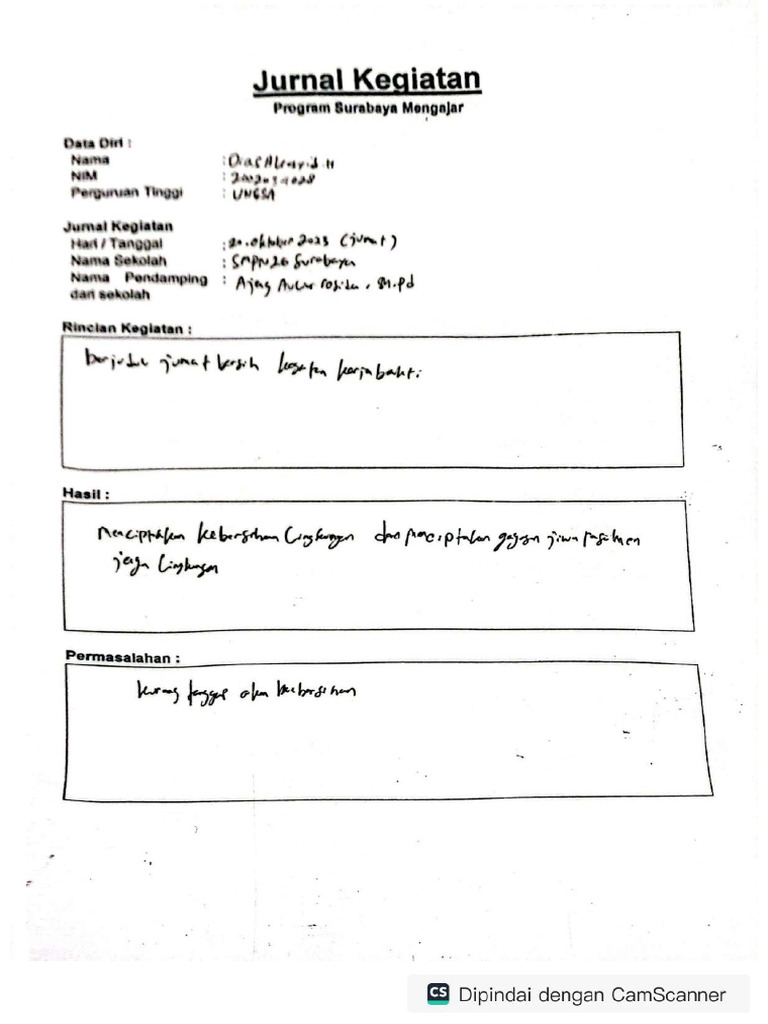 Jurnal Kegiatan
Program Surabaya Mengajar
Data Diri :
Nama :
NIM :
Perguruan Tinggi : UNESA
Jurnal Kegiatan
Hari / Tanggal : 20. Oktober 2023 (jumat)
Nama Sekolah : SMPN 26 Surabaya
Nama Pendamping : Ajeng M.Pd
dari sekolah
Rincian Kegiatan :
jumat bersih kegiatan kerja bakti
Hasil :
Menciptakan kebersihan Lingkungan dan menciptakan gagasan jiwa
jaga Lingkungan
Permasalahan :
kurang tanggap akan kebersihan
CS Dipindai dengan CamScanner